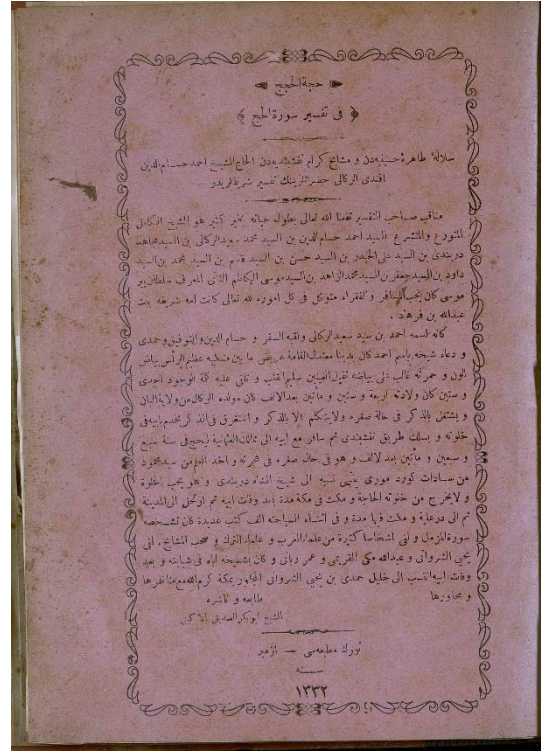 حجة الحجج
﴿ فى تفسير سورة الحج ﴾
سلالۀ طاهرۀ حسينيه‌دن و مشايخ كرام نقشبنديه‌دن الحاج الشيخ احمد حسام الدين
افندى الركالى حضرتلرينك تفسير شريفلريدر
مناقب صاحب التفسير متعنا الله تعالى بطول حياته بخير كثير هو الشيخ الكامل
المتورع والمتشرع السيد احمد حسام الدين بن السيد محمد سعيد الركالى بن السيد مجاهد
دربندى بن السيد على الحيدر بن السيد حسن بن السيد قاسم بن السيد محمد بن السيد
داود بن السيد جعفر بن السيد محمد الزاهد بن السيد موسى الكاظم الثانى المعرف سلطان پير
موسى كان يحب المسافر والفقراء متوكل فى كل اموره لله تعالى كانت امه شريفه بنت
عبدالله بن فرهاد .
كانه لسمه احمد بن سيد سعيد الركالى ولقبه السفر و حسام الدين والتوفيق وحمدى
و دعاء شيخه باسم احمد كان بدينا معتدل القامة عريض ما بين منكبيه عظيم الرأس بياض
اللون و حمرته غالب على بياضه ثقيل العينين سليم القلب و تلقى عليه الوجود احدى
و ستين كان ولادته اربعة و ستين و مأتين بعد الالف كان مولده الركال من ولاية الان
و يشتغل بالذكر فى حالة صغره ولا يتكلم الا بالذكر و استغرق فى الذكر يخدم بابيه فى
خلوته و يسلك طريق نقشبندى ثم سافر مع ابيه الى ممالك العثمانية ليحج فى سنة سبع
و سبعين و مأتين بعد الالف و هو فى حال صغره فى هجرته و اخذ العلم من سيد محمود
من سادات كورد مورى ينتهى نسبه الى شيخ الشاه دربندى و هو يحب الخلوة
و لا يخرج من خلوته الا لحاجة و مكث فى مكة مدة بعد وفات ابيه ثم ارتحل الى المدينة
ثم الى درعلية و مكث فيها مدة و فى اثناء السياحته الف كتب عديدة كان تشخصه
سورة المزمل و لقى اشخاصا كثيرة من علماء العرب و علماء الترك و صحب المشايخ . لقى
يحيى الشروانى و عبدالله مكى القريمى و عمر ربانى و كان شيخه اباه فى شبابته و بعد
وفات ابيه انتسب الى خليل حمدى بن يحيى الشروانى المجاور بمكة كرم الله مع مناظرها
و مجاورها
طابعه و ناشره
الشيخ ابو بكر الصديق الاكينى
تورك مطبعه‌سى — ازمير
سنه
١٣٣٢